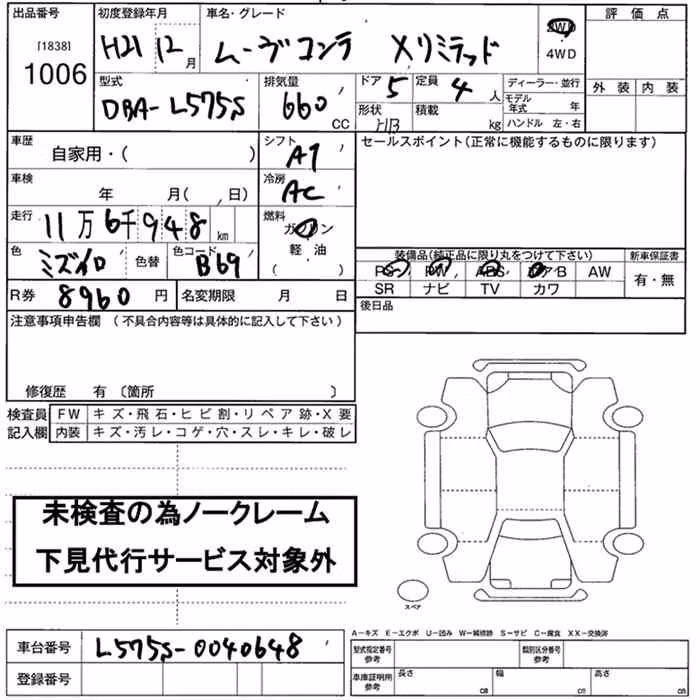 出品番号 初度登録年月 車名・グレード 評価点
[1838] 1006 H21 12月 ムーヴコンテ Xリミテッド 2WD 4WD
外装 内装
型式 排気量 ドア 5 定員 4人 ディーラー・並行
DBA-L575S 660 CC 形状 H/B 積載 kg モデル年式 年
ハンドル 左・右
車歴 自家用・( ) シフト AT セールスポイント(正常に機能するものに限ります)
車検 年 月( , 日) 冷房 AC
走行 11万6千948km 燃料 ガソリン
軽油
( )
色 ミズイロ 色替 色コード B69
装備品(純正品に限り丸をつけて下さい) 新車保証書
PS PW ABS エアB AW 有・無
SR ナビ TV カワ
R券 8960円 名変期限 月 日 後日品
注意事項申告欄 (不具合内容等は具体的に記入して下さい)
修復歴 有 〔箇所 〕
検査員 FW キズ・飛石・ヒビ割・リペア跡・X要
記入欄 内装 キズ・汚レ・コゲ・穴・スレ・キレ・破レ
未検査の為ノークレーム
下見代行サービス対象外
スペア
A-キズ E-エクボ U-凹み W-補修跡 S-サビ C-腐食 XX-交換済
車台番号 L575S-0040648
登録番号
型式指定番号 参考 類別区分番号 参考
車庫証明用 参考 長さ cm 幅 cm 高さ cm